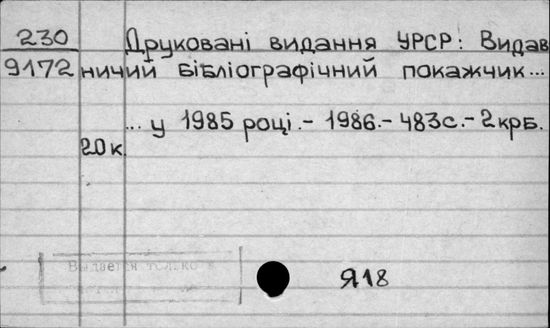 230 Друковані видання УРСР: Видав
9172 ничий бібліографічний покажчик...
... у 1985 році.- 1986.- 483с.- 2крб.
20к.
Выдается только в
Я18